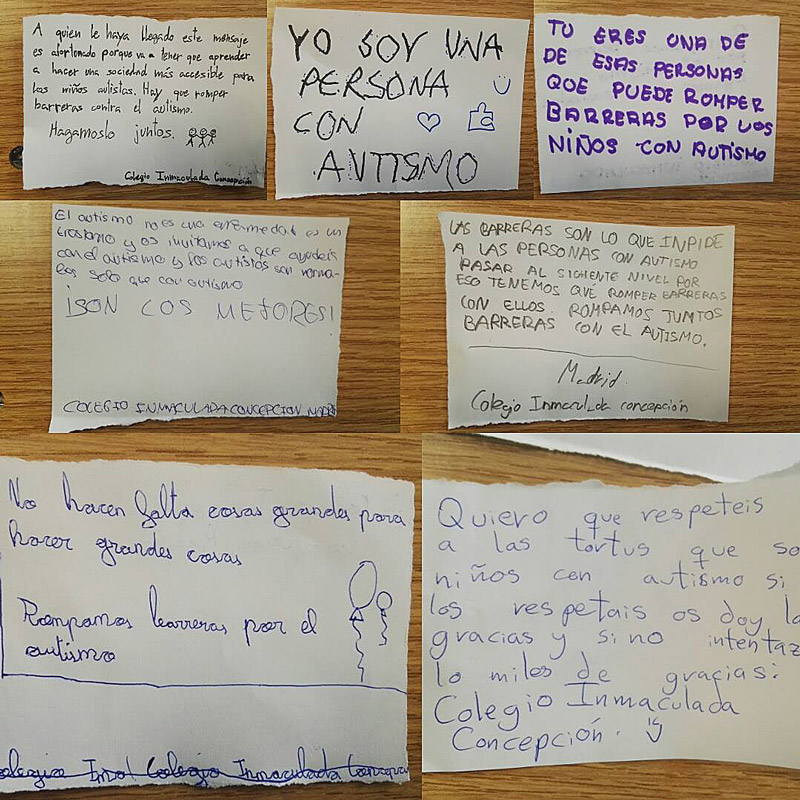 A quien le haya llegado este mensaje
es afortunado porque va a tener que aprender
a hacer una sociedad más accesible para
los niños autistas. Hay que romper
barreras contra el autismo.
Hagamoslo juntos.
Colegio Inmaculada Concepción
YO SOY UNA
PERSONA
CON
AUTISMO
TU ERES UNA DE
DE ESAS PERSONAS
QUE PUEDE ROMPER
BARRERAS POR LOS
NIÑOS CON AUTISMO
El autismo no es una enfermedad es un
trastorno y os invitamos a que ayudeis
con el autismo y los autistas son norma-
les solo que con autismo
¡SON LOS MEJORES!
COLEGIO INMACULADA CONCEPCION
LAS BARRERAS SON LO QUE INPIDE
A LAS PERSONAS CON AUTISMO
PASAR AL SIGIENTE NIVEL POR
ESO TENEMOS QUE ROMPER BARRERAS
CON ELLOS. ROMPAMOS JUNTOS
BARRERAS CON EL AUTISMO.
Madrid.
Colegio Inmaculada concepción
No hacen falta cosas grandes para
hacer grandes cosas
Rompamos barreras por el
autismo
Colegio Inmaculada
Quiero que respeteis
a las tortus que so
niños con autismo si
los respetais os doy la
gracias y si no intentaz
lo miles de gracias:
Colegio Inmaculada
Concepción.